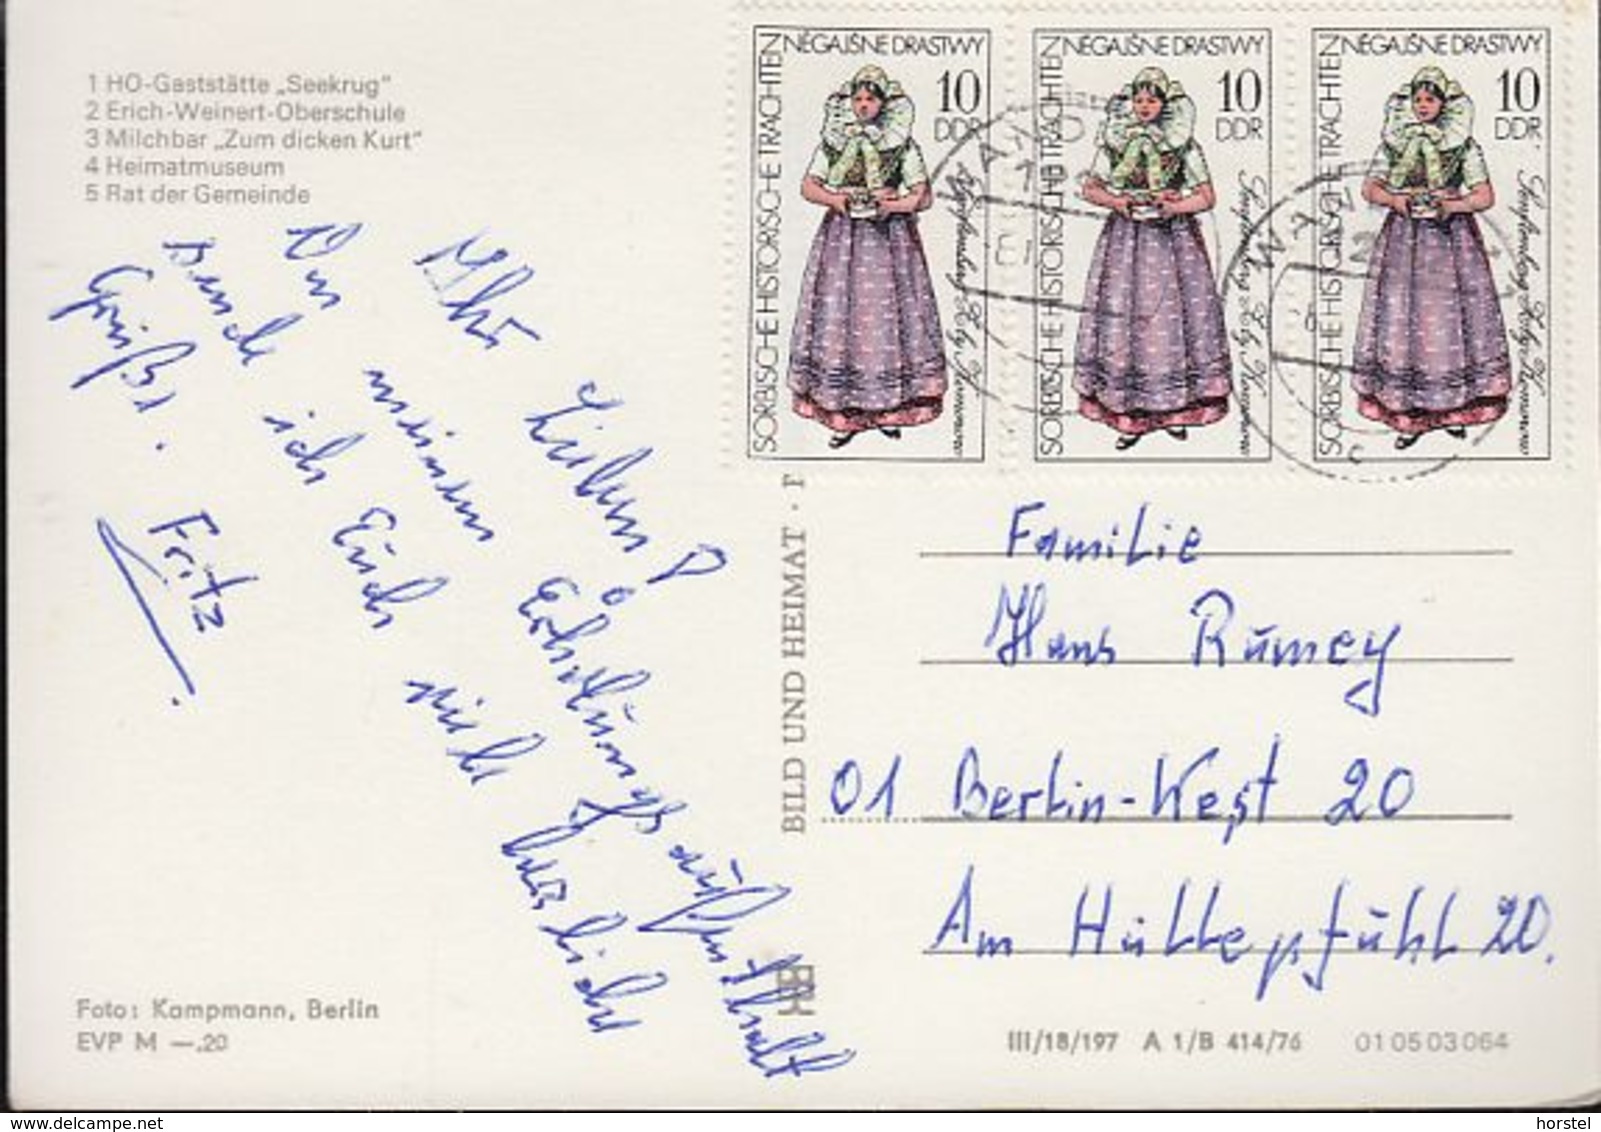 1 HO-Gaststätte „Seekrug“
2 Erich-Weinert-Oberschule
3 Milchbar „Zum dicken Kurt“
4 Heimatmuseum
5 Rat der Gemeinde
Ihr Lieben!
Von meinem Erholungsaufenthalt
sende ich Euch viele herzliche
Grüße.
Fritz
Foto: Kampmann, Berlin
EVP M —.20
BILD UND HEIMAT
SORBISCHE HISTORISCHE TRACHTEN
NĚGAJŠNE DRASTWY
10
DDR
SORBISCHE HISTORISCHE TRACHTEN
NĚGAJŠNE DRASTWY
10
DDR
SORBISCHE HISTORISCHE TRACHTEN
NĚGAJŠNE DRASTWY
10
DDR
Familie
Hans Rumey
01 Berlin-West 20
Am Hüllepfühl 20.
III/18/197 A 1/B 414/76 01 05 03 064
delcampe.net
horstel